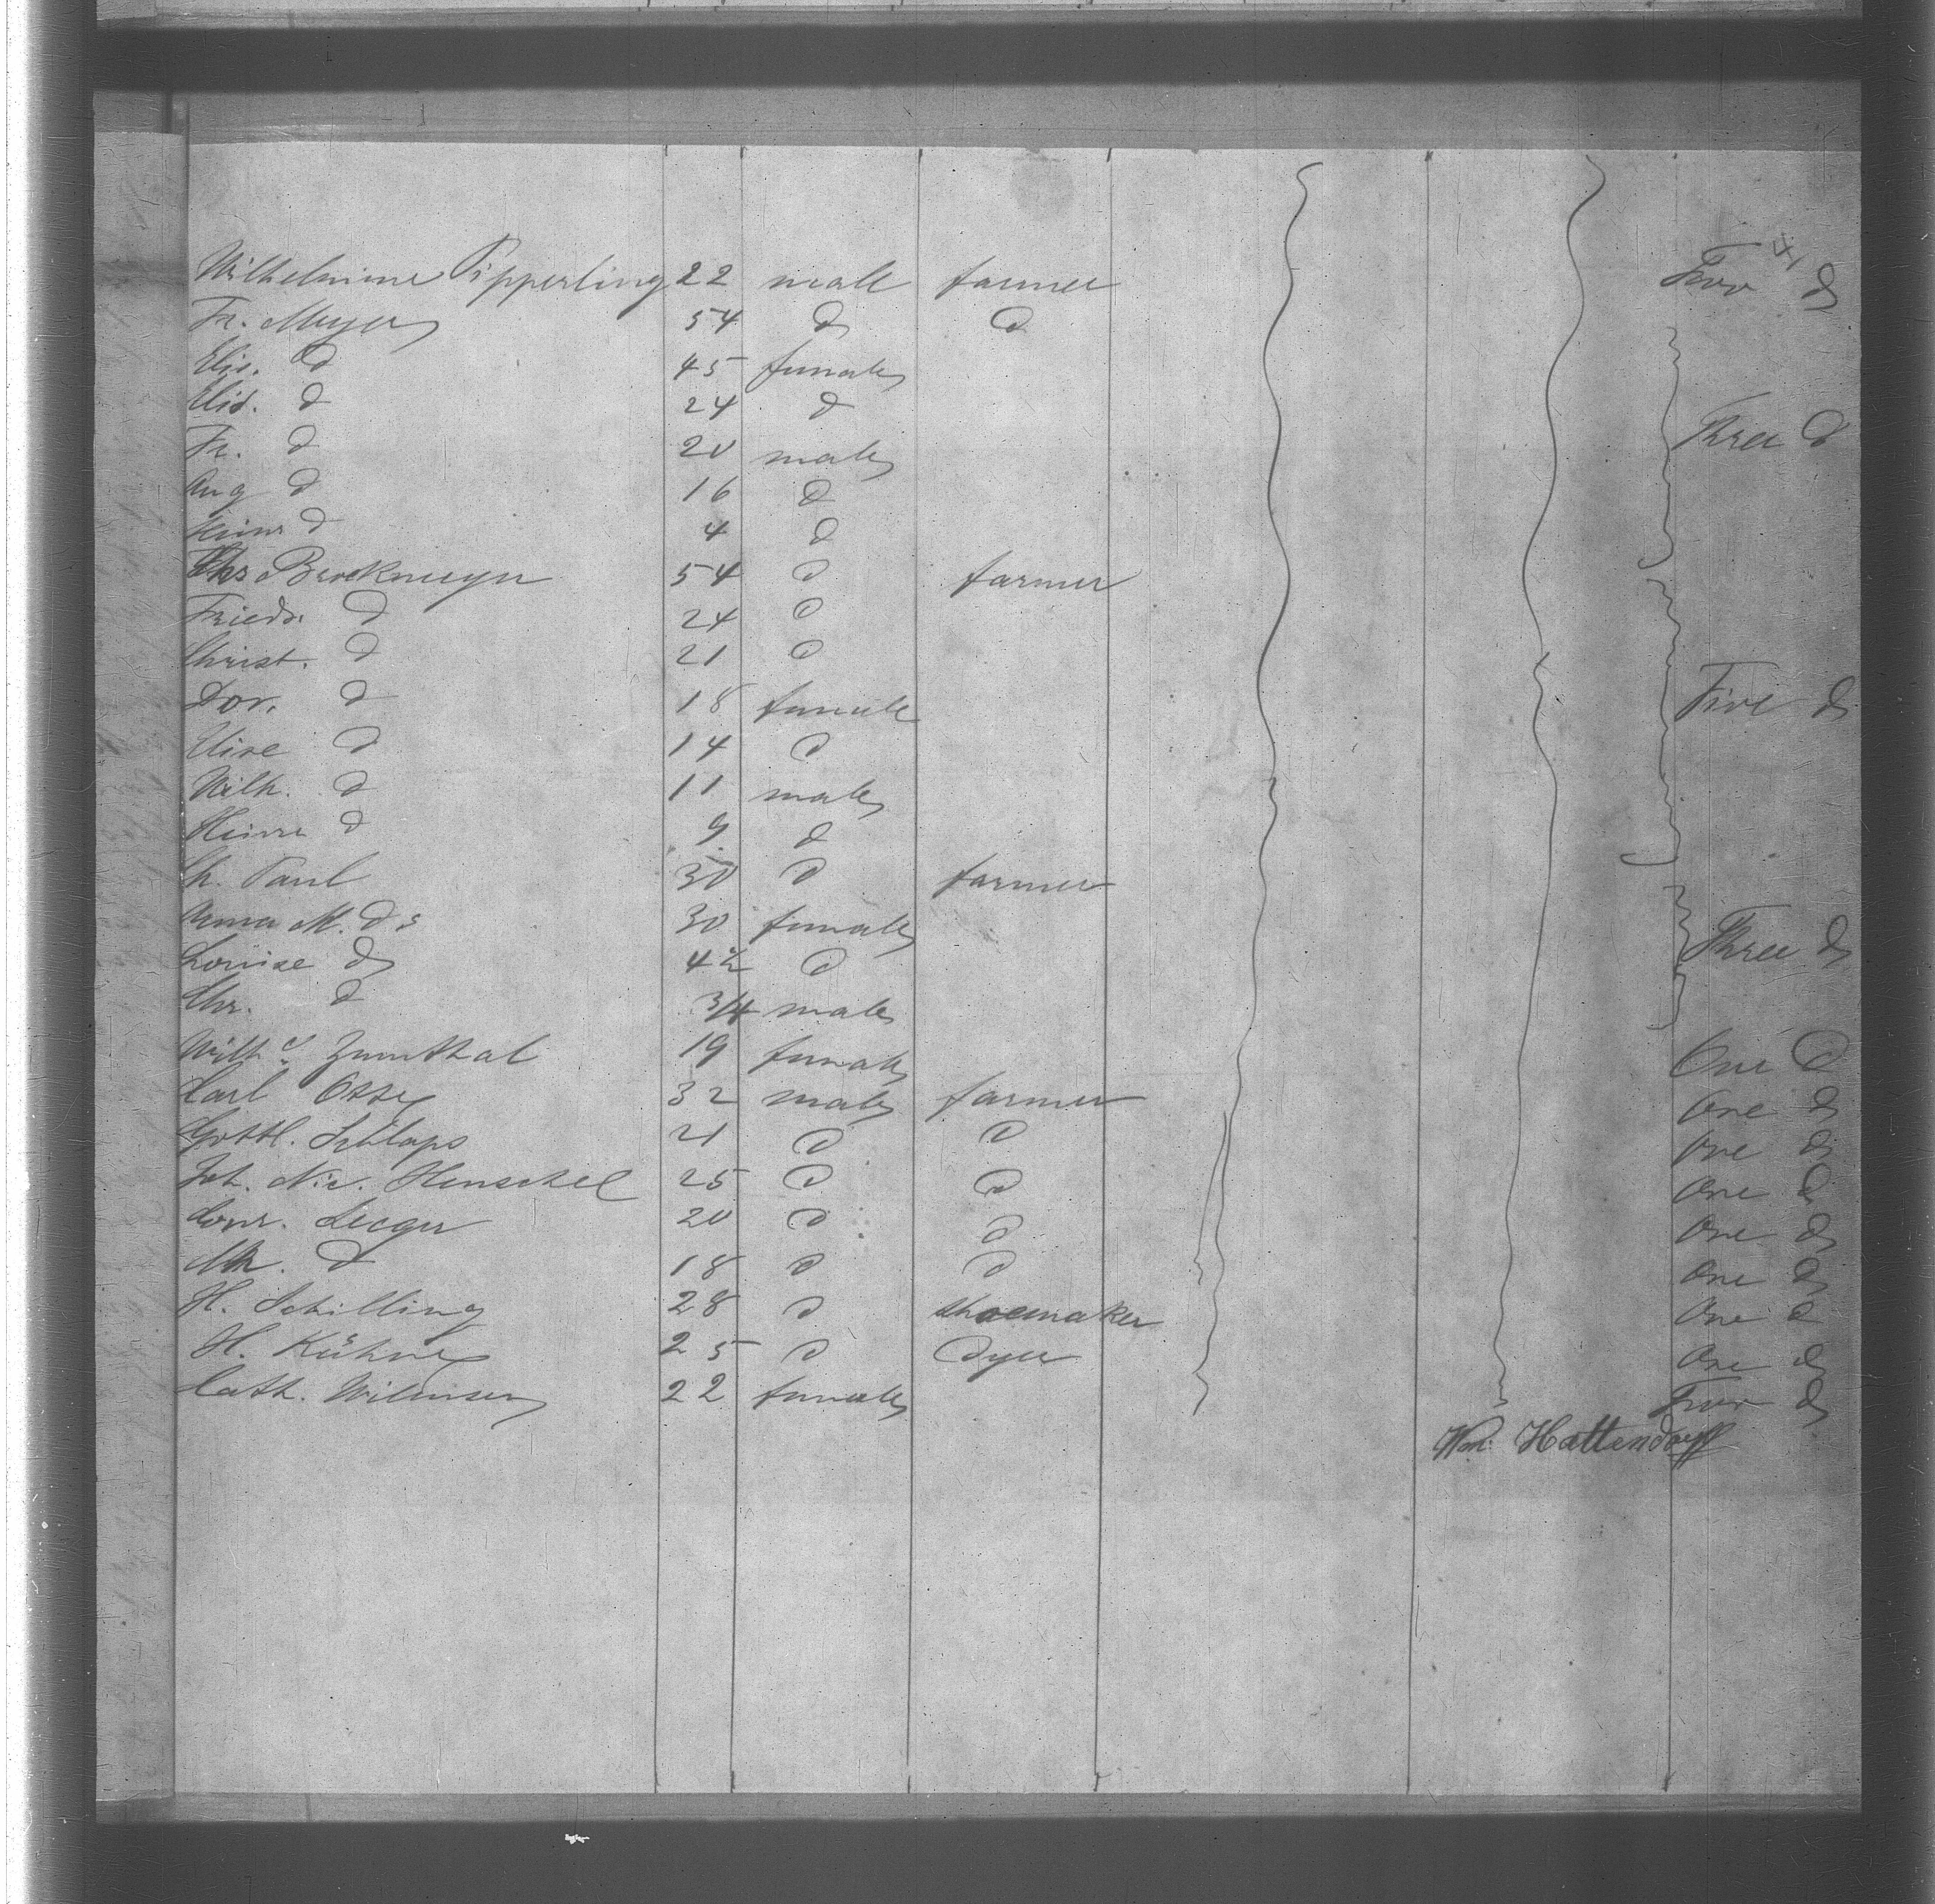 Wilhelmine Pipperling 22 male farmer Four d
Fr. Meyer 54 d d
Elis. d 45 female
Elis. d 24 d
Fr. d 20 male Three d
Aug d 16 d
Heinr d 4 d
Chs Brockmeyer 54 d farmer
Friedr. d 24 d
Christ. d 21 d
Dor. d 18 female Five d
Elise d 14 d
Wilh. d 11 male
Heinr d 9 d
Ch. Paul 30 d farmer
Anna M. d 30 female Three d
Louise d 4½ d
Chr. d 3/4 male
Wilh. Zumthal 19 female One d
Carl Otte 32 male farmer One d
Gottl. Schlaps 21 d d One d
Joh. Nic. Henschel 25 d d One d
Conr. Seeger 20 d d One d
d 18 d d One d
H. Schilling 28 d shoemaker One d
H. Kühne 25 d Dyer One d
Cath. Wilmsen 22 female d
Wm. Hattendorff